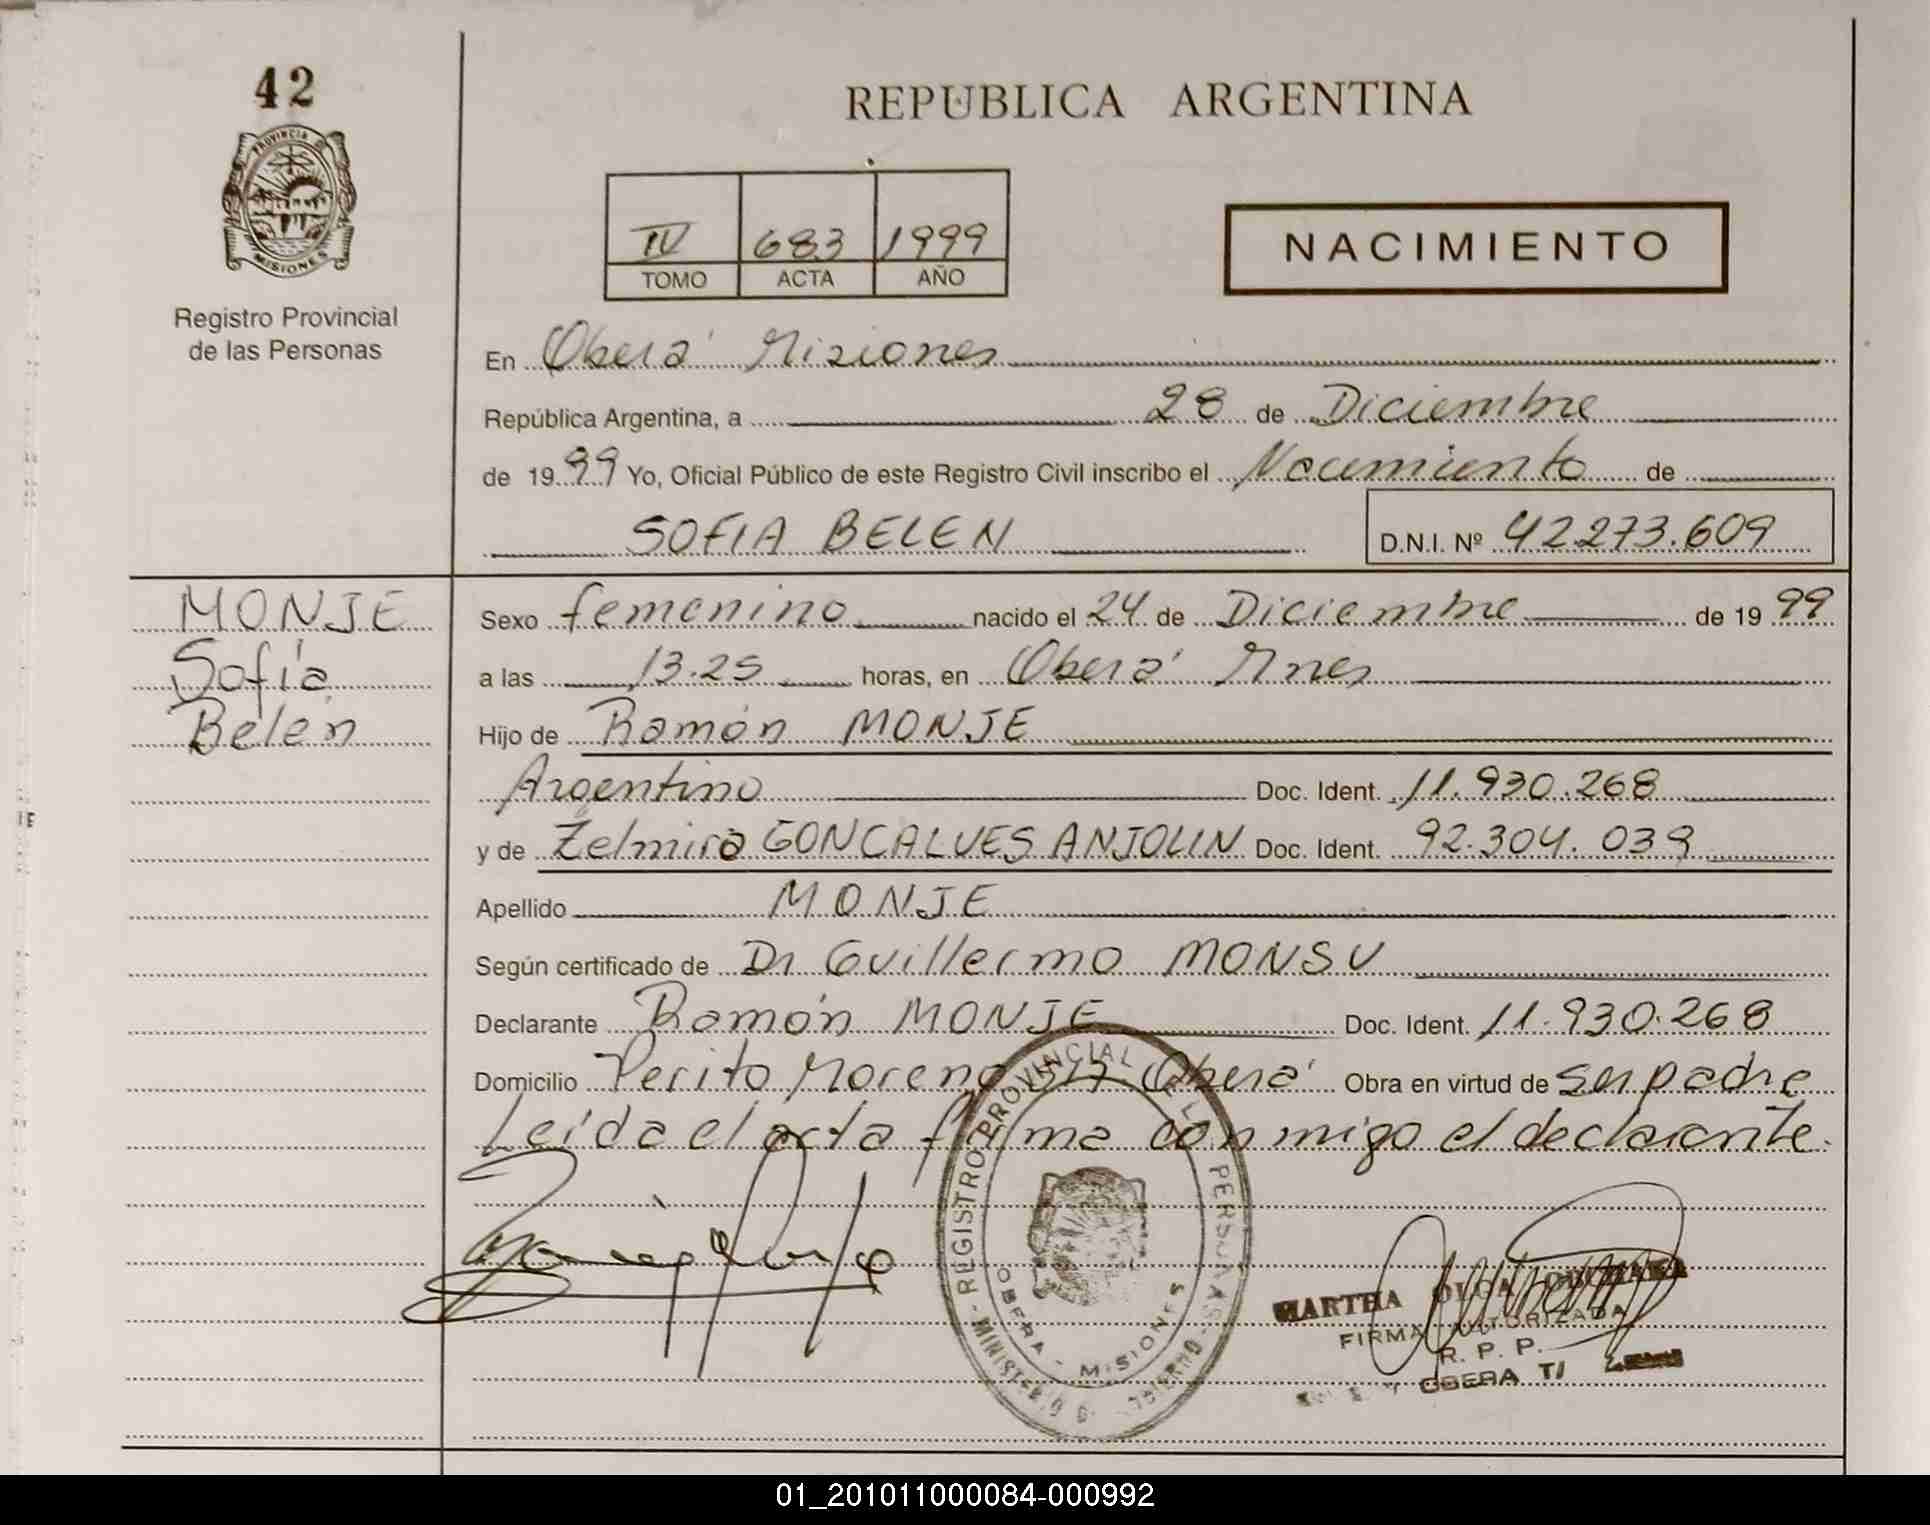 42
PROVINCIA
MISIONES
Registro Provincial
de las Personas
REPUBLICA ARGENTINA
IV 683 1999
TOMO ACTA AÑO
NACIMIENTO
En Oberá Misiones
República Argentina, a 28 de Diciembre
de 1999 Yo, Oficial Público de este Registro Civil inscribo el Nacimiento de
SOFIA BELEN D.N.I. Nº 42.273.609
MONJE
Sofía
Belén
Sexo femenino nacido el 24 de Diciembre de 1999
a las 13.25 horas, en Oberá Mnes
Hijo de Ramón MONJE
Argentino Doc. Ident. 11.930.268
y de Zelmira GONCALVES ANJOLIN Doc. Ident. 92.304.039
Apellido MONJE
Según certificado de Dr Guillermo MONSU
Declarante Ramón MONJE Doc. Ident. 11.930.268
Domicilio Perito Moreno Oberá Obra en virtud de ser padre
Leída el acta firma conmigo el declarante.
REGISTRO PROVINCIAL DE LAS PERSONAS
OBERA - MISIONES
MARTHA OLGA
FIRMA AUTORIZADA
R. P. P.
OBERA
01_201011000084-000992